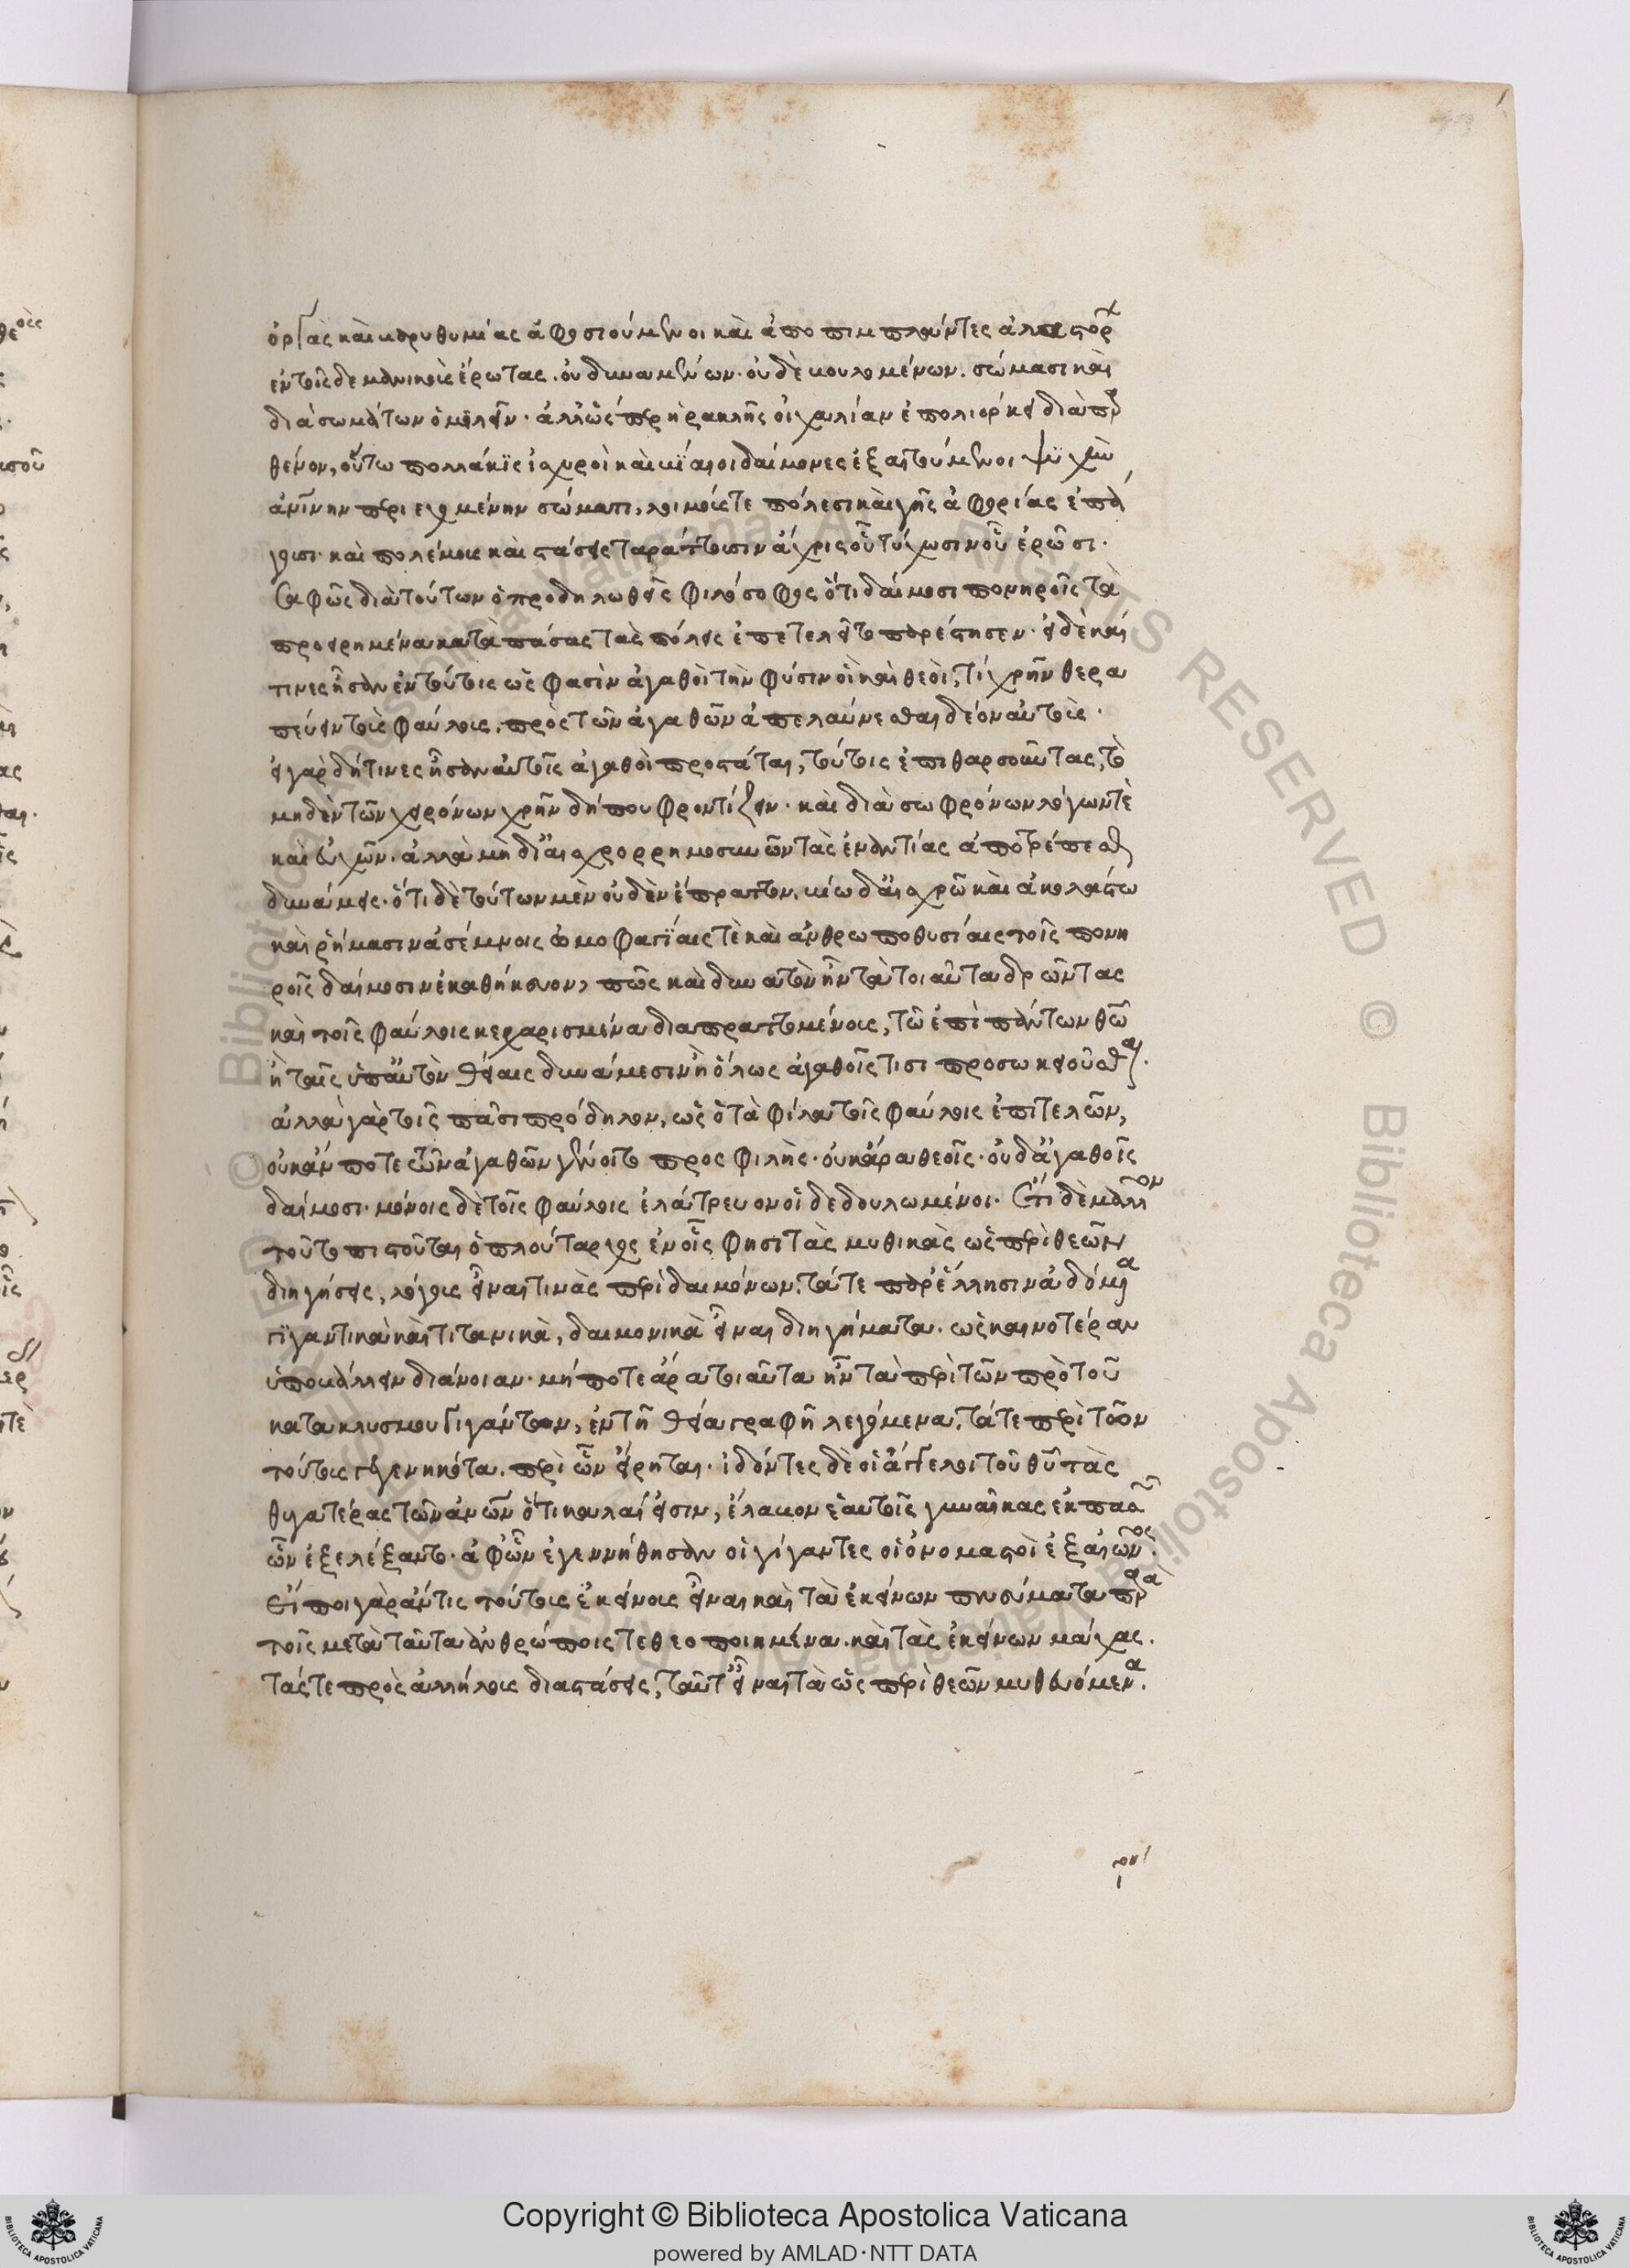 ὀργὰς καὶ βαρυθυμίας ἀφοσιούμενοι καὶ ἀποπιμπλάντες ἀλαστόρ
ἐντοῖς δὲ μανικοὺς ἔρωτας. οὐ δυναμένων. οὐδὲ βουλομένων. σώμασι καὶ
διὰ σωμάτων ὁμιλεῖν. ἀλλ' ὥσπερ ἡρακλῆς οἰχαλίαν ἐπολιόρκει διὰ παρ
θένον, οὕτω πολλάκις ἰσχυροὶ καὶ βίαιοι δαίμονες ἐξαιτούμενοι ψυχὴν
ἀνίνην περιεχομένην σώματι, λοιμούς τε πόλεσι καὶ γῆς ἀφορίας ἐπά
γουσι. καὶ πολέμους καὶ στάσεις ταράττουσιν ἄχρις οὗ τύχωσιν οὗ ἐρῶσι.
Σαφῶς διὰ τούτων ὁ προδηλωθεὶς φιλόσοφος ὅτι δαίμοσι πονηροῖς τὰ
προειρημένα κατὰ πάσας τὰς πόλεις ἐπετελεῖτο παρέστησεν. εἰ δὲ καί
τινες ἦσαν ἐν τούτοις ὥς φασιν ἀγαθοὶ τὴν φύσιν οἱ καὶ θεοὶ, τί χρῆν θερα
πεύειν τοὺς φαύλους. πρὸς τῶν ἀγαθῶν ἀπελαύνεσθαι δέον αὐτούς.
εἰ γὰρ δή τινες ἦσαν αὐτοῖς ἀγαθοὶ προστάται, τούτοις ἐπιθαρσοῦντας, τὸ
μηδὲν τῶν χειρόνων χρῆν δήπου φροντίζειν. καὶ διὰ σωφρόνων λόγων τὲ
καὶ εὐχῶν. ἀλλὰ μὴ δι' αἰσχρορρημοσυνῶν τὰς ἐναντίας ἀποτρέπεσθαι
δυνάμεις. ὅτι δὲ τούτων μὲν οὐδὲν ἔπραττον, βίω δ' αἰσχρῶ καὶ ἀκολάστω
καὶ ῥήμασιν ἀσέμνοις ὠμοφαγίαις τὲ καὶ ἀνθρωποθυσίαις τοῖς πονη
ροῖς δαίμοσιν ἐκαθήκενον, πῶς καὶ δυνατὸν ἦν τὰ τοιαῦτα δρῶντας
καὶ τοῖς φαύλοις κεχαρισμένα διαπραττομένοις, τῶ ἐπὶ πάντων θῶ
ἢ ταῖς ὑπ' αὐτὸν θείαις δυνάμεσιν ἢ ὅλως ἀγαθοῖς τισι προσωκειοῦσθαι.
ἀλλὰ γὰρ τοῖς πᾶσι πρόδηλον, ὡς ὁ τὰ φίλα τοῖς φαύλοις ἐπιτελῶν,
οὐκ ἄν ποτε τῶν ἀγαθῶν γένοιτο προσφιλής. οὐκ ἄρα θεοῖς. οὐδ' ἀγαθοῖς
δαίμοσι. μόνοις δὲ τοῖς φαύλοις ἐλάτρευον οἱ δεδουλωμένοι. Ἔτι δὲ μᾶλλον
τοῦτο πιστοῦται ὁ πλούταρχος ἐν οἷς φησι τὰς μυθικὰς ὡς περὶ θεῶν
διηγήσεις, λόγους εἶναί τινὰς περὶ δαιμόνων. τά τε παρ' ἕλλησιν ἀδόμενα
γιγαντικὰ καὶ τιτανικὰ, δαιμονικὰ εἶναι διηγήματα. ὡς καινοτέραν
ὑποβάλλειν διάνοιαν. μή ποτε ἄρα τοιαῦτα ἦν τὰ περὶ τῶν πρὸ τοῦ
κατακλυσμου γιγάντων, ἐν τῆ θεία γραφῆ λεγόμενα. τά τε περὶ τῶν
τούτους γεγενηκότα. περὶ ὧν εἴρηται. ἰδόντες δὲ οἱ ἄγγελοι τοῦ θῦ τὰς
θυγατέρας τῶν ἀνων ὅτι καλαί εἰσιν, ἔλαβον ἑαυτοῖς γυναῖκας ἐκ πασῶν
ὧν ἐξελέξαντο. ἀφ' ὧν ἐγεννήθησαν οἱ γίγαντες οἱ ὀνομαστοὶ ἐξ αἰῶνος.
Εἴποι γὰρ ἄν τις τούτους ἐκείνους εἶναι καὶ τὰ ἐκείνων πνεύματα παρὰ
τοῖς μετὰ ταῦτα ἀνθρώποις τεθεοποιημένα. καὶ τὰς ἐκείνων μάχας.
τάς τε πρὸς ἀλλήλους διαστάσεις, ταῦτ' εἶναι τὰ ὡς περὶ θεῶν μυθευόμενα.